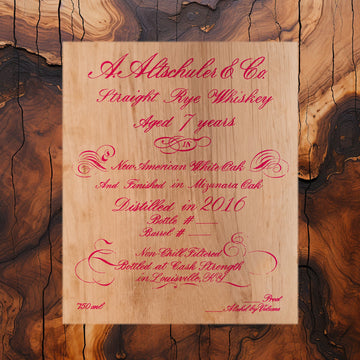 A. Altschuler & Co.
Straight Rye Whiskey
Aged 7 years
in
New American White Oak
And Finished in Mizunara Oak
Distilled in 2016
Bottle # ___
Barrel # ___
Non Chill Filtered
Bottled at Cask Strength
in Louisville, KY
750 ml
___ Proof
___ Alcohol by Volume